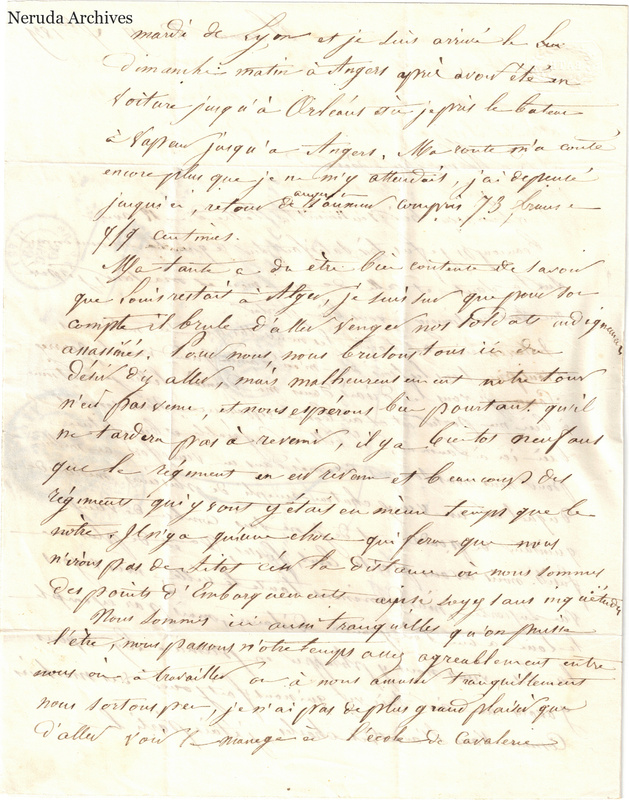 Neruda Archives
mardi de Lyon et je suis arrivé le
dimanche matin à Angers après avoir été en
voiture jusqu'à Orléans où je pris le bateau
à vapeur jusqu'à Angers. Ma route m'a couté
encore plus que je ne m'y attendais, j'ai dépensé
jusqu'ici, retour de Saumur compris 73 francs
centimes.
Ma tante a du être bien contente de savoir
que Louis restait à Alger, je suis sur que pour son
compte il brule d'aller venger nos soldats indignement
assassinés. Pour nous, nous brulons tous ici du
désir d'y aller, mais malheureusement notre tour
n'est pas venu, et nous espérons bien pourtant qu'il
ne tardera pas à revenir, il y a bientot neuf ans
que le régiment en est revenu et beaucoup des
régiments qui y sont y étais en même temps que le
notre. Il n'y a qu'une chose qui fera que nous
n'irons pas de sitot c'est la distance où nous sommes
des points d'Embarquements ainsi soyez sans inquiétudes
Nous sommes ici aussi tranquilles qu'on puisse
l'être, nous passons n'otre temps assez agréablement entre
nous où à travailler ou à nous amuser tranquillement
nous sortons peu, je n'ai pas de plus grand plaisir que
d'aller voir le manege à l'école de Cavalerie